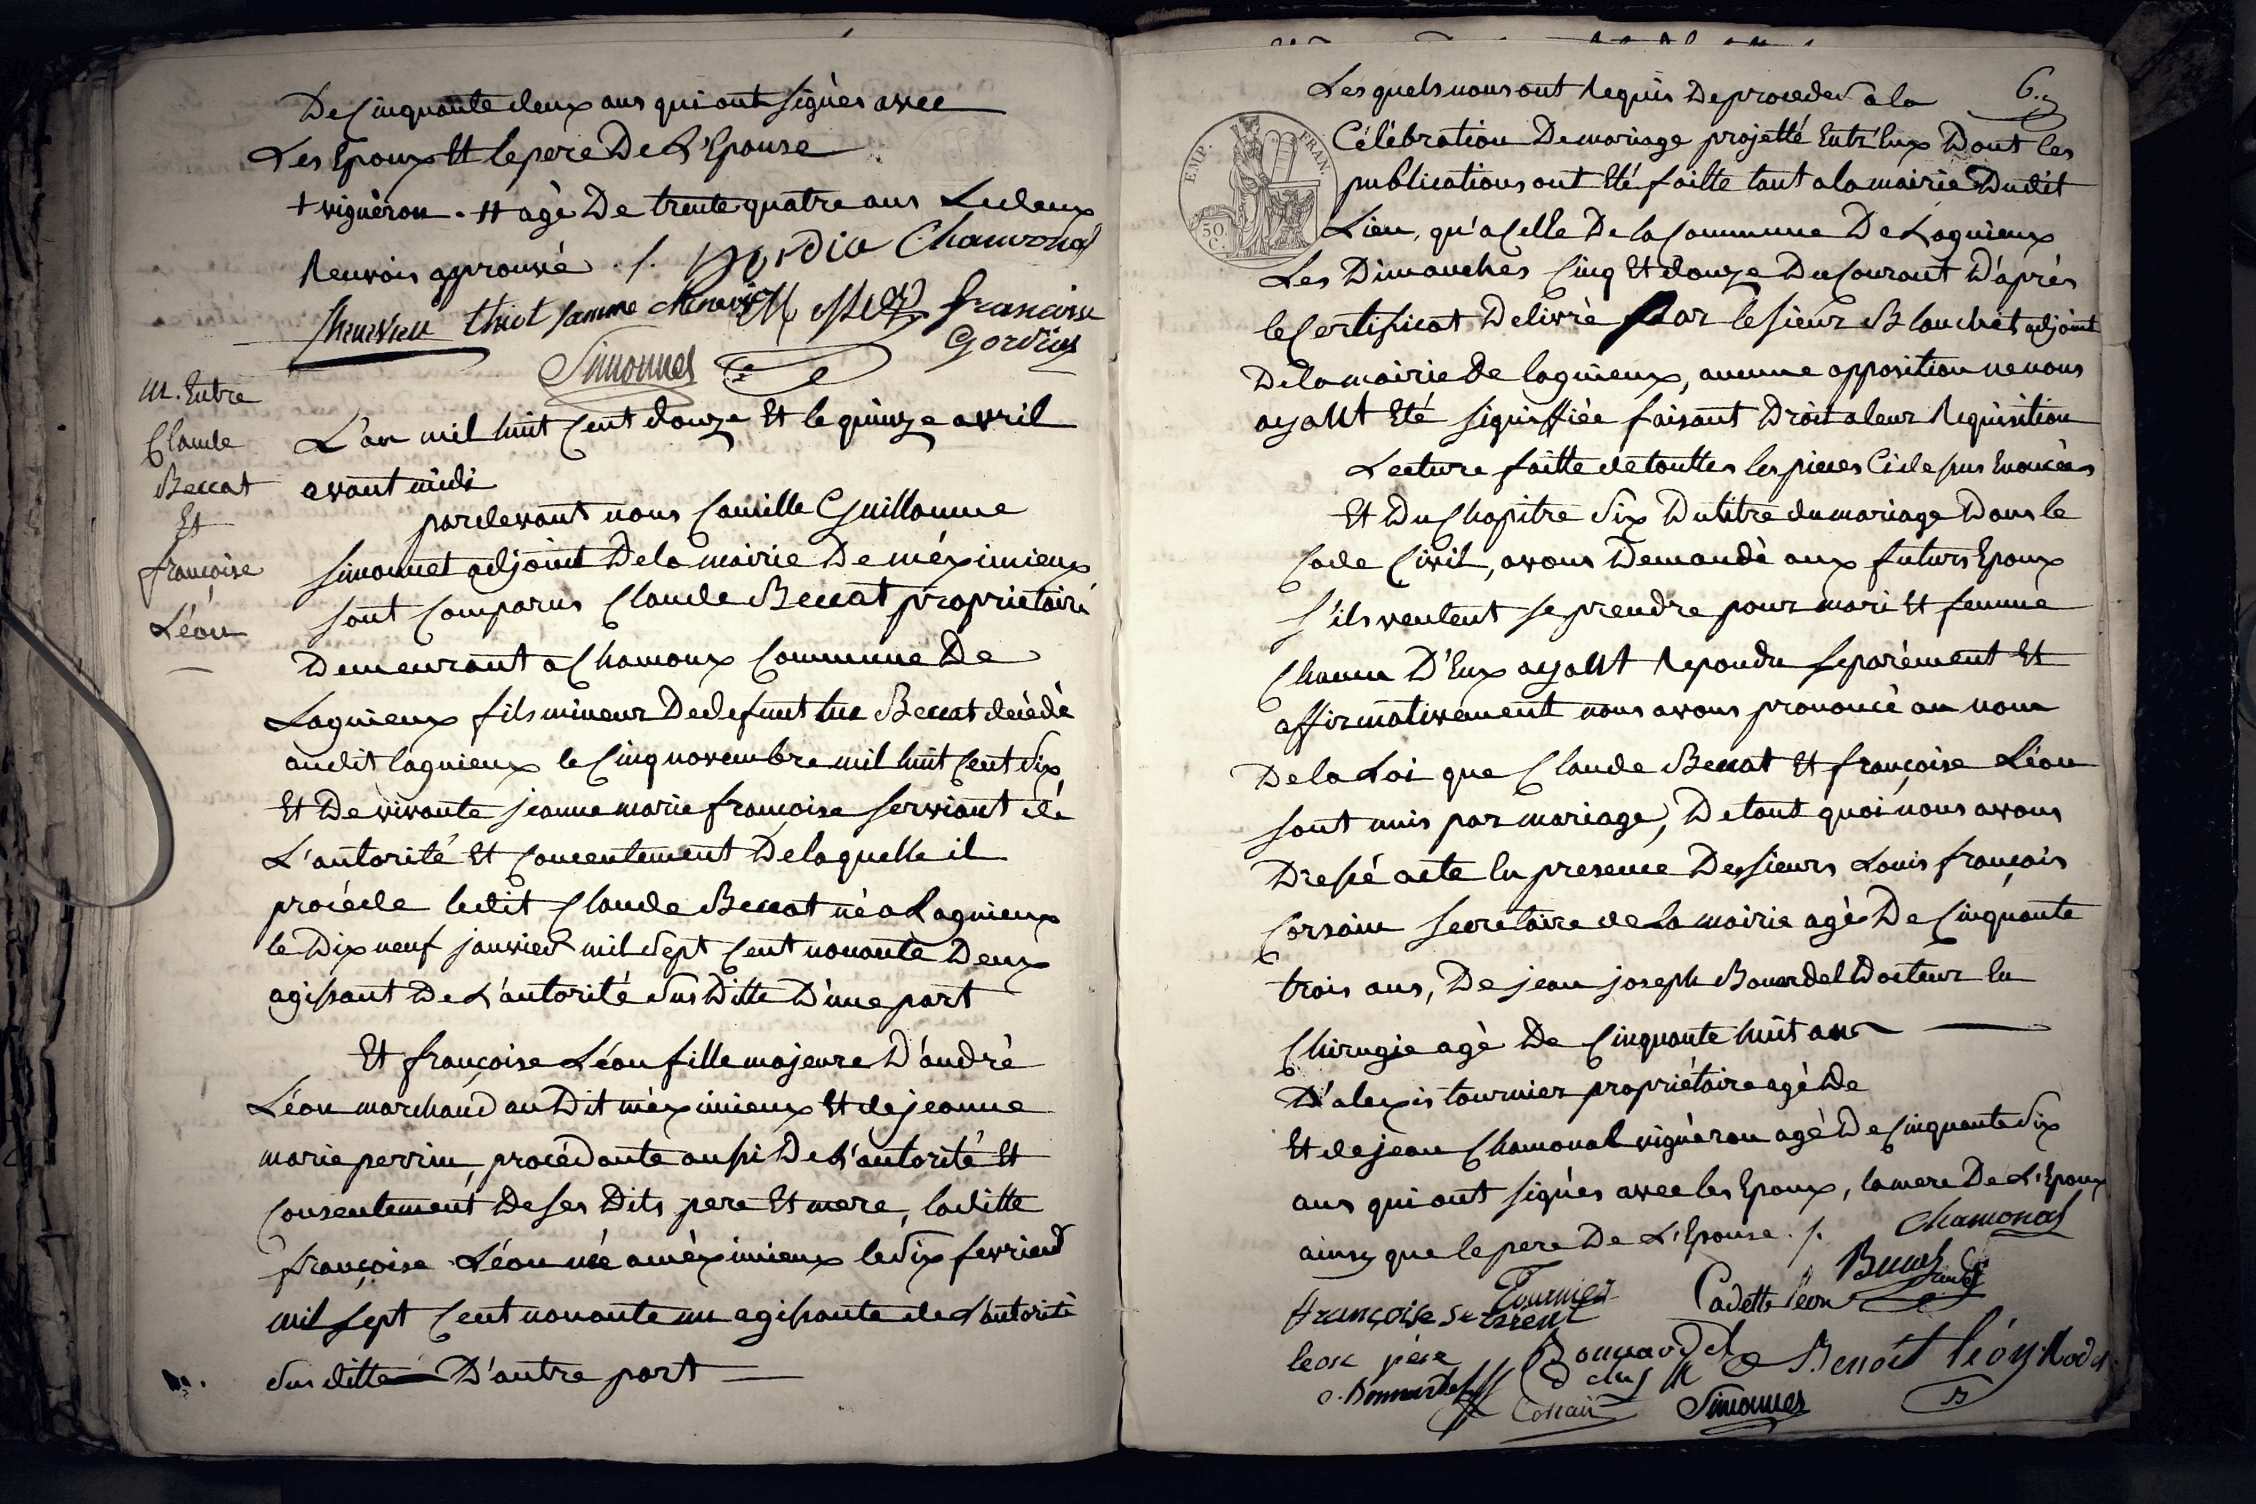 De Cinquante deux ans qui ont signès avec
Les Epoux Et le pere De L'Epouse
+ vignèron. # agè De trente quatre ans Les deux
Renvois approuvè ./. Chamonal
thiot femme
françoise
Simonnet
M. Entre
Claude
Beccat
Et
françoise
Léon
L'an mil huit Cent douze Et le quinze avril
avant midi
pardevant nous Camille Guillaume
Simonnet adjoint De la mairie De méximieux
sont Comparus Claude Beccat propriétaire
Demeurant a Chamoux Commune De
Lagnieux fils mineur De defunt Beccat décédè
audit lagnieux le Cinq novembre mil huit Cent dix
Et De vivante jeanne marie françoise serviant de
L'autorité Et Concentement De laquelle il
procéde ledit Claude Beccat né a Lagnieux
le Dix neuf janvier mil sept Cent nonante Deux
agissant De L'autorité sus Ditte D'une part
Et françoise Léon fille majeure D'andrè
Léon marchand au Dit mèximieux Et de jeanne
marie perrin, procédante aussi De L'autorité Et
Consentement De ses Dits pere Et mere, laditte
françoise Léon née a mèximieux le six fevrier
mil sept Cent nonante un agissante de L'autorité
sus ditte D'autre part
6.
EMP. FRAN.
50 C.
Les quels nous ont Requis De proceder a la
Célébration De mariage projetté Entr'Eux Dont les
publications ont Eté faitte tant a la mairie Dudit
Lieu, qu'a Celle De la Commune De Lagnieux
Les Dimanches Cinq Et douze Du Courant D'après
le Certificat Delivrè Par le sieur Blanchet adjoint
De la mairie de lagnieux, aucune opposition ne nous
ayant Eté signiffiée faisant Droit a leur Requisition
Lecture faitte de touttes les pieces Ci dessus Enoncées
Et Du Chapitre Six Du titre du mariage Dans le
Code Civil, avons Demandè aux futurs Epoux
S'ils veulent se prendre pour mari Et femme
Chacun D'Eux ayant Repondu séparèment Et
affirmativement nous avons prononcé au nom
De la Loi que Claude Beccat Et françoise Léon
sont unis par mariage, De tout quoi nous avons
Dressé acte En presence Des sieurs Louis françois
Corsain Secretaire de La mairie agè De Cinquante
trois ans, De jean joseph Bonardel Docteur En
Chirugie agè De Cinquante huit ans
D'alexis tournier propriétaire agè De
Et de jean Chamonal vignèron agè De Cinquante Six
ans qui ont signès avec les Epoux, la mere De L'Epoux
ainsy que le pere De L'Epouse ./. Chamonal
Tournier
françoise
Cadette léon
leon père
Bonnardel
Benoit léon
Simonnet